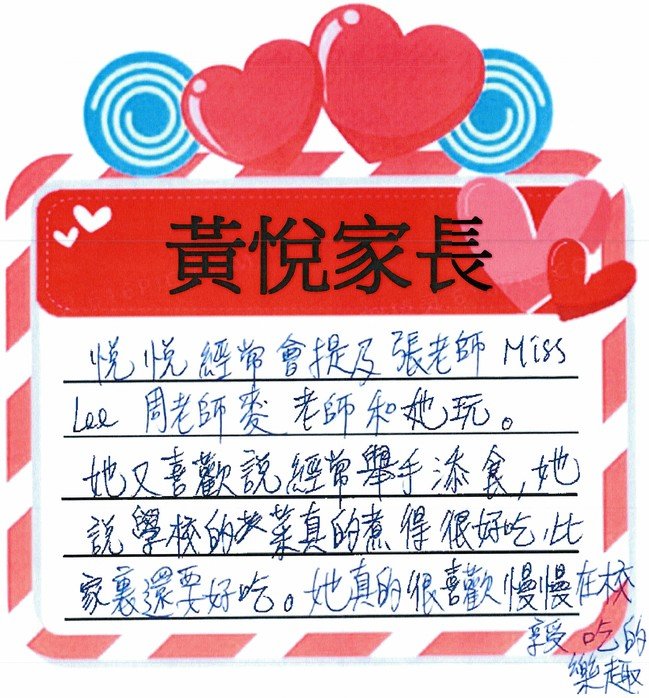 黃悅家長
悅悅經常會提及張老師 Miss
Lee 周老師麥老師和她玩。
她又喜歡說經常舉手添食,她
說學校的菜真的煮得很好吃,比
家裏還要好吃。她真的很喜歡慢慢在校
享受吃的
樂趣